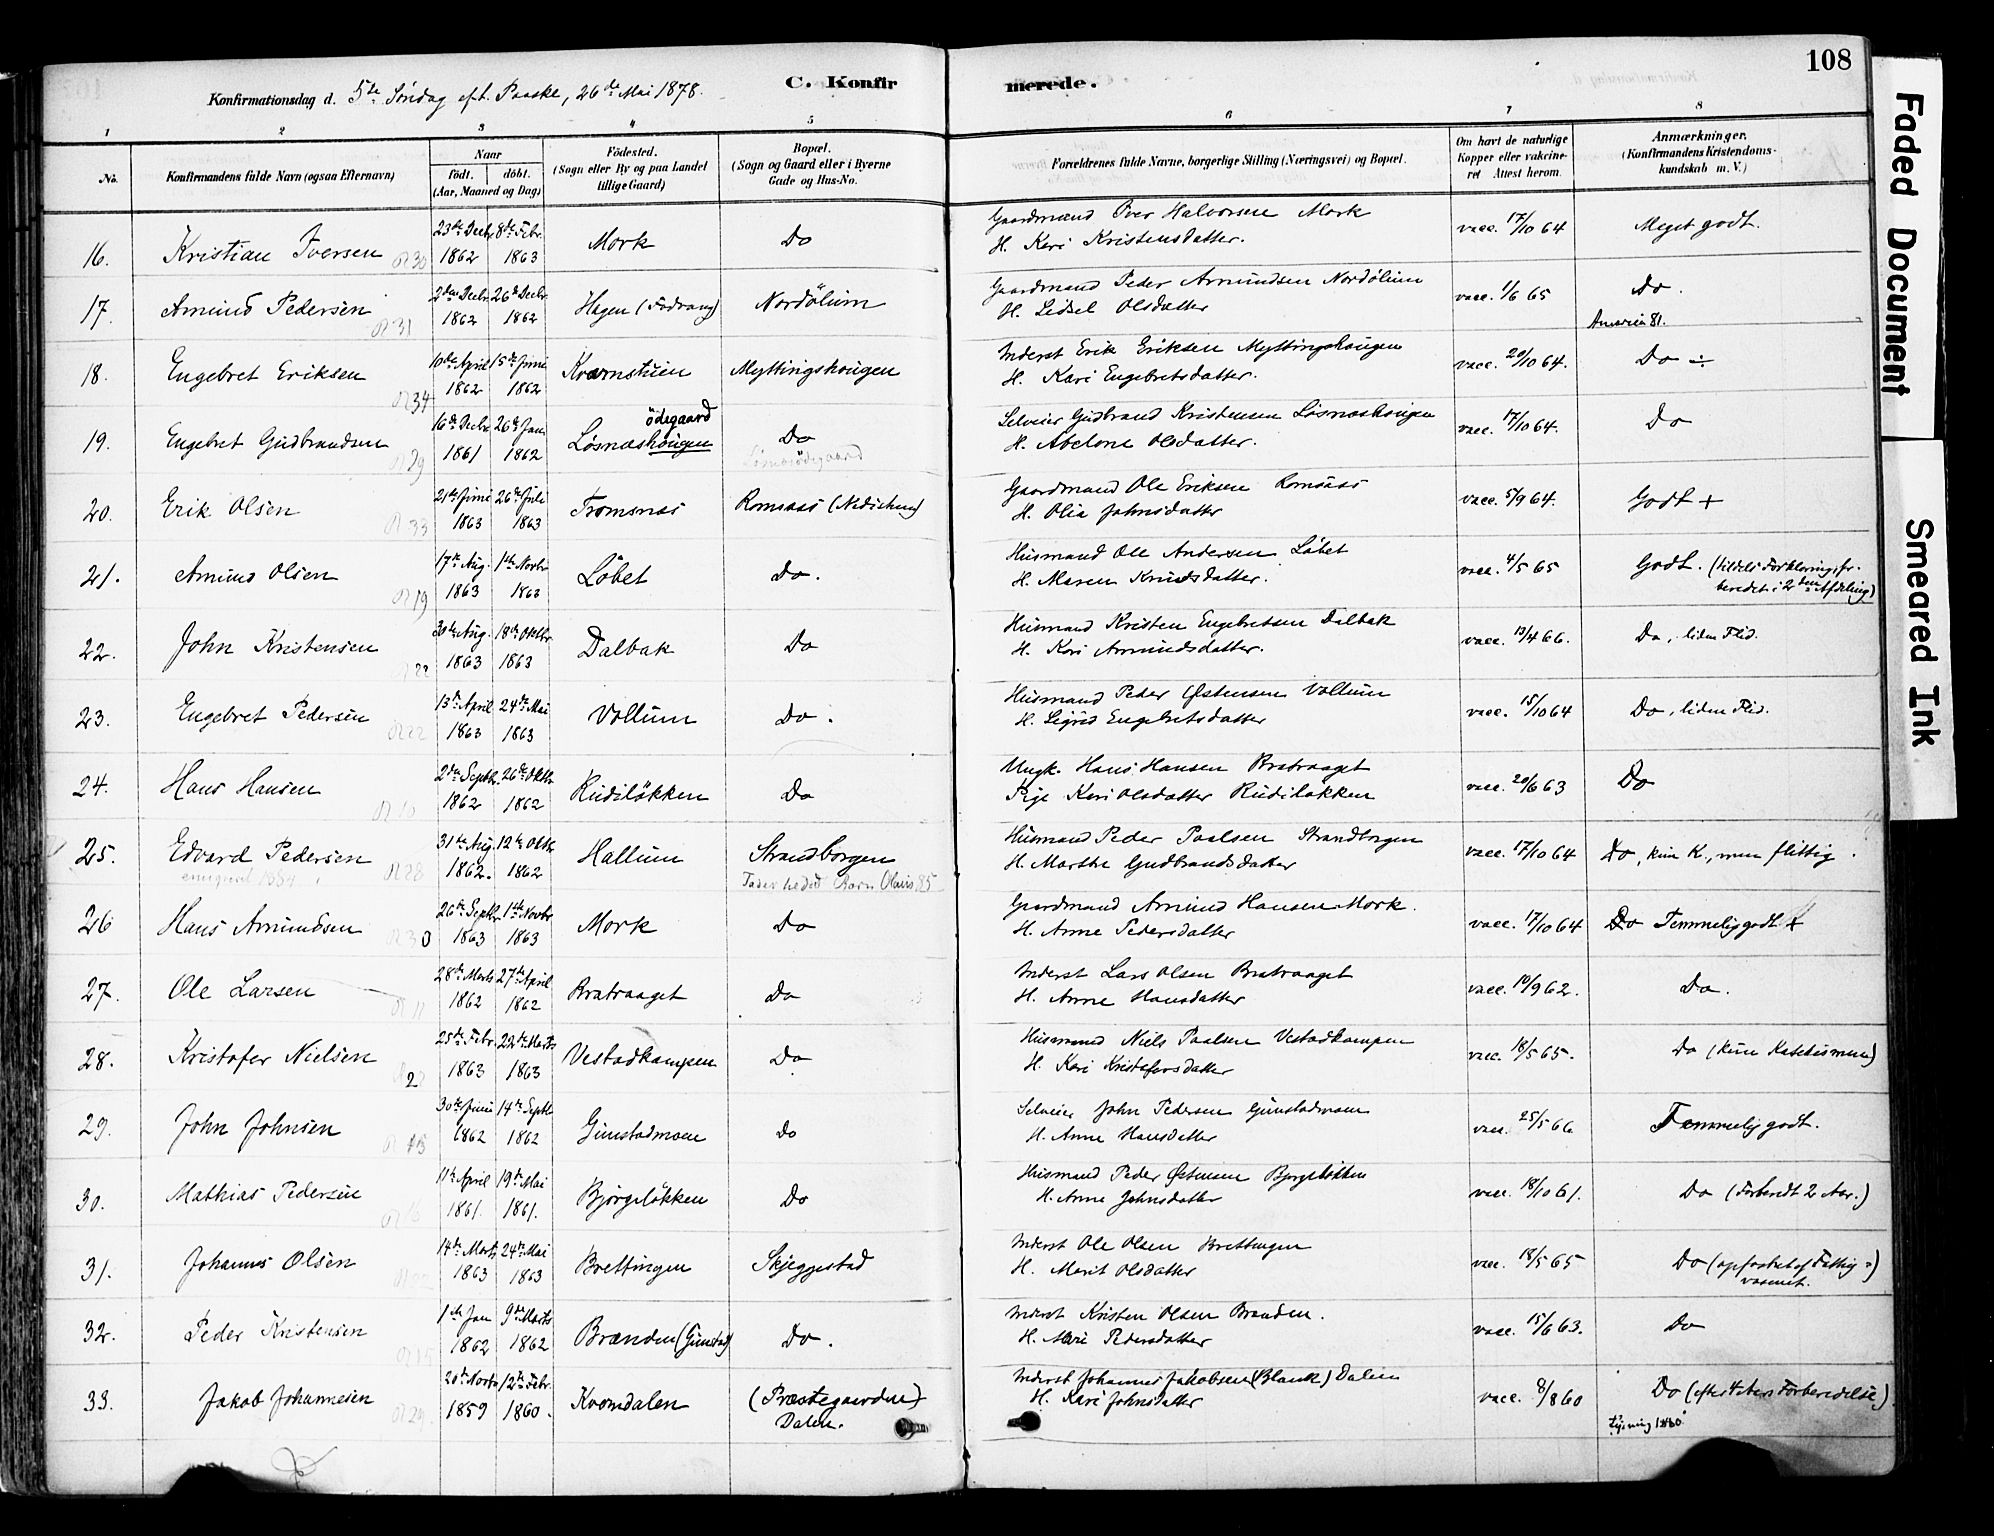 108
C. Konfirmerede.
Konfirmationsdag d. 5te Søndag eft. Paaske, 26de Mai 1878.
1 2 3 4 5 6 7 8
No. Konfirmandens fulde Navn (ogsaa Efternavn) Naar født. døbt. (Aar, Maaned og Dag) Fødested. (Sogn eller By og paa Landet tillige Gaard) Bopæl. (Sogn og Gaard eller i Byerne Gade og Hus-No. Forældrenes fulde Navne, borgerlige Stilling (Næringsvei) og Bopæl. Om havt de naturlige Kopper eller vakcineret Attest herom. Anmærkninger. (Konfirmandens Kristendomskundskab m. V.)
16. Kristian Iversen 23de Decbr. 1862 8de Febr. 1863 Mork Do Gaardmand Iver Halvorsen Mork H. Kari Kristensdatter. vacc. 17/10 64 Meget godt.
17. Amund Pedersen 2den Decbr. 1862 26de Decbr. 1862 Hagen (Fodvang) Nordølum Gaardmand Peder Amundsen Nordølum H. Sidsel Olsdatter vacc. 1/6 65 Do.
America 81.
18. Engebret Eriksen 10de April 1862 15de Juni 1862 Kvarnstuen Myttingshougen Inderst Erik Eriksen Myttingshougen H. Kari Engebretsdatter. vacc. 20/10 64. Do ÷
19. Engebret Gudbrandsen 16de Decbr. 1861 26de Jan. 1862 Løsnæshougen ødegaard Do Løsnæsødegaard Selveier Gudbrand Kristensen Løsnæshougen H. Abelone Olsdatter. vacc. 17/10 64. Do
20. Erik Olsen 21de Juni 1863 26de Juli 1863 Tromsnæs Romsaas (Nedistuen) Gaardmand Ole Eriksen Romsaas H. Olia Johnsdatter vacc. 5/9 64. Godt +
21. Amund Olsen 17de Aug. 1863 1ste Novbr 1863 Løbet Do. Husmand Ole Andersen Løbet H. Maren Knudsdatter. vacc. 4/5 65 Godt. (tildels Forklaring, forberedet i 2den Afdeling)
22. John Kristensen 30te Aug. 1863 18de Oktbr. 1863 Dalbak Do Husmand Kristen Engebretsen Dalbak H. Kari Amundsdatter. vacc. 13/4 66. Do, liden Flid.
23. Engebret Pedersen 13de April 1863 24de Mai 1863 Vollum Do. Husmand Peder Østensen Vollum H. Sigrid Engebretsdatter vacc. 15/10 64 Do, liden Flid.
24. Hans Hansen 2den Septbr. 1862 26de Oktbr 1862 Rudiløkken Do Ungk. Hans Hansen Bratvaaget Pige Kari Olsdatter Rudiløkken vacc. 20/6 63 Do
25. Edvard Pedersen 31te Aug. 1862. 12te Oktb 1862 Hallum Strandborgen Husmand Peder Paalsen Strandborgen H. Marthe Gudbrandsdatter vacc. 17/10 64 Do, kun K., men flittig.
emigreret 1884
26 Hans Amundsen 26de Septbr 1863 1ste Novbr 1863 Mork Do Gaardmand Amund Hansen Mork. H. Anne Pedersdatter vacc. 17/10 64 Do Temmelig godt +
27. Ole Larsen 28de Marts 1862 27de April 1862 Bratvaaget Do Inderst Lars Olsen Bratvaaget H. Anne Hansdatter vacc. 19/9 62. Do.
28. Kristofer Nielsen 25de Febr. 1863 22de Marts 1863 Vestadkampen Do Husmand Niels Paalsen Vestadkampen H. Kari Kristofersdatter vacc. 18/5 65. Do (kun Katekismen)
29. John Johnsen 30te Juni 1862 14de Septbr 1862 Gunstadmoen Do Selveier John Pedersen Gunstadmoen H. Anne Hansdatter vacc. 25/5 66 Temmelig godt.
30. Mathias Pedersen 11te April 1861. 19de Mai 1861. Bjørgeløkken Do Husmand Peder Østensen Bjørgeløkken H. Anne Johnsdatter vacc. 18/10 61. Do (Forberedt 2 Aar.)
31. Johannes Olsen 14de Marts 1863 24de Mai 1863 Brettingen Skjeggestad Inderst Ole Olsen Brettingen H. Marit Olsdatter vacc. 18/5 65 Do (opfostret af Fattigvæsenet.)
32. Peder Kristensen 1ste Jan 1862 9de Marts 1862 Brænden (Gunstad) Do. Inderst Kristen Olsen Brænden. H. Mari Pedersdatter vacc. 15/6 63. Do
33. Jakob Johannesen 20de Novbr 1859 12te Febr. 1860. Kvomdalen (Præstegaarden) Dalen. Inderst Johannes Jakobsen (Blank) Dalen H. Kari Johnsdatter vacc. 8/8 60 Do (efter 4 Aars Forberedelse).
Faded Document
Smeared Ink